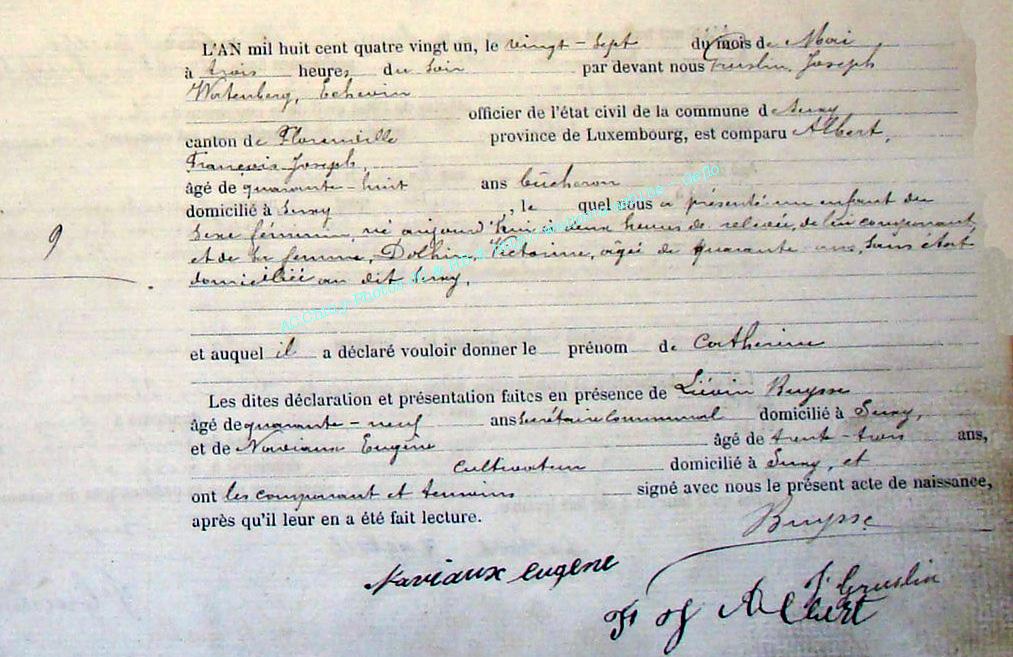 L'AN mil huit cent quatre vingt un, le vingt-sept du mois de Mai
à trois heures du soir par devant nous Gruslin, Joseph
Echevin
officier de l'état civil de la commune de Suxy
canton de Florenville province de Luxembourg, est comparu Albert,
François Joseph,
âgé de quarante-huit ans bûcheron
domicilié à Suxy, le quel nous a présenté un enfant du
sexe féminin, né aujourd'hui à deux heures de relevée, de lui comparant,
et de sa femme, Victorine, agée de quarante ans, sans état
domiciliée au dit Suxy,
9
et auquel il a déclaré vouloir donner le prénom de Catherine
Les dites déclaration et présentation faites en présence de Liévin Buysse
âgé de quarante-neuf ans Secrétaire Communal domicilié à Suxy,
et de Naviaux Eugène âgé de trente-trois ans,
Cultivateur domicilié à Suxy, et
ont les comparant et témoins signé avec nous le présent acte de naissance,
après qu'il leur en a été fait lecture.
Buysse
Naviaux eugene
J Gruslin
F J Albert